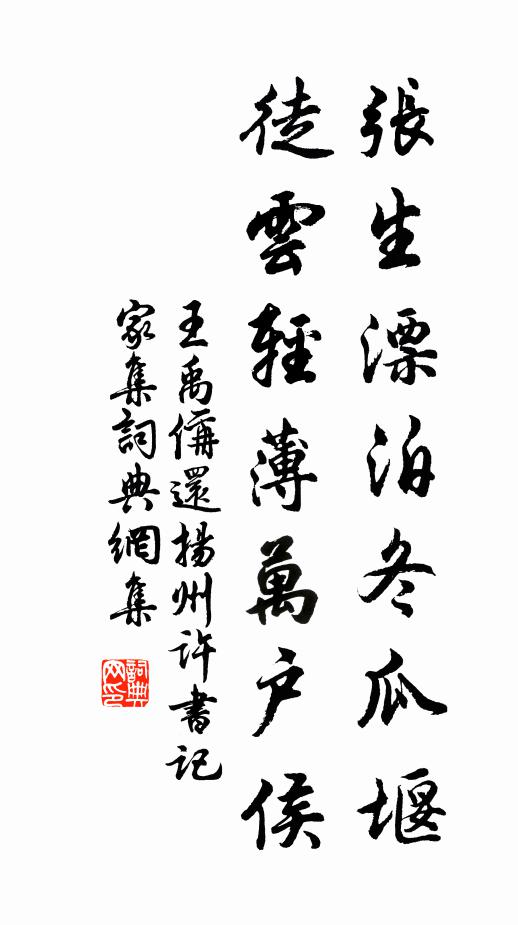 張生漂泊冬瓜堰
徒雲輕薄萬戶侯
王禹偁還揚州許書記
家集詞典網集
詞典网印